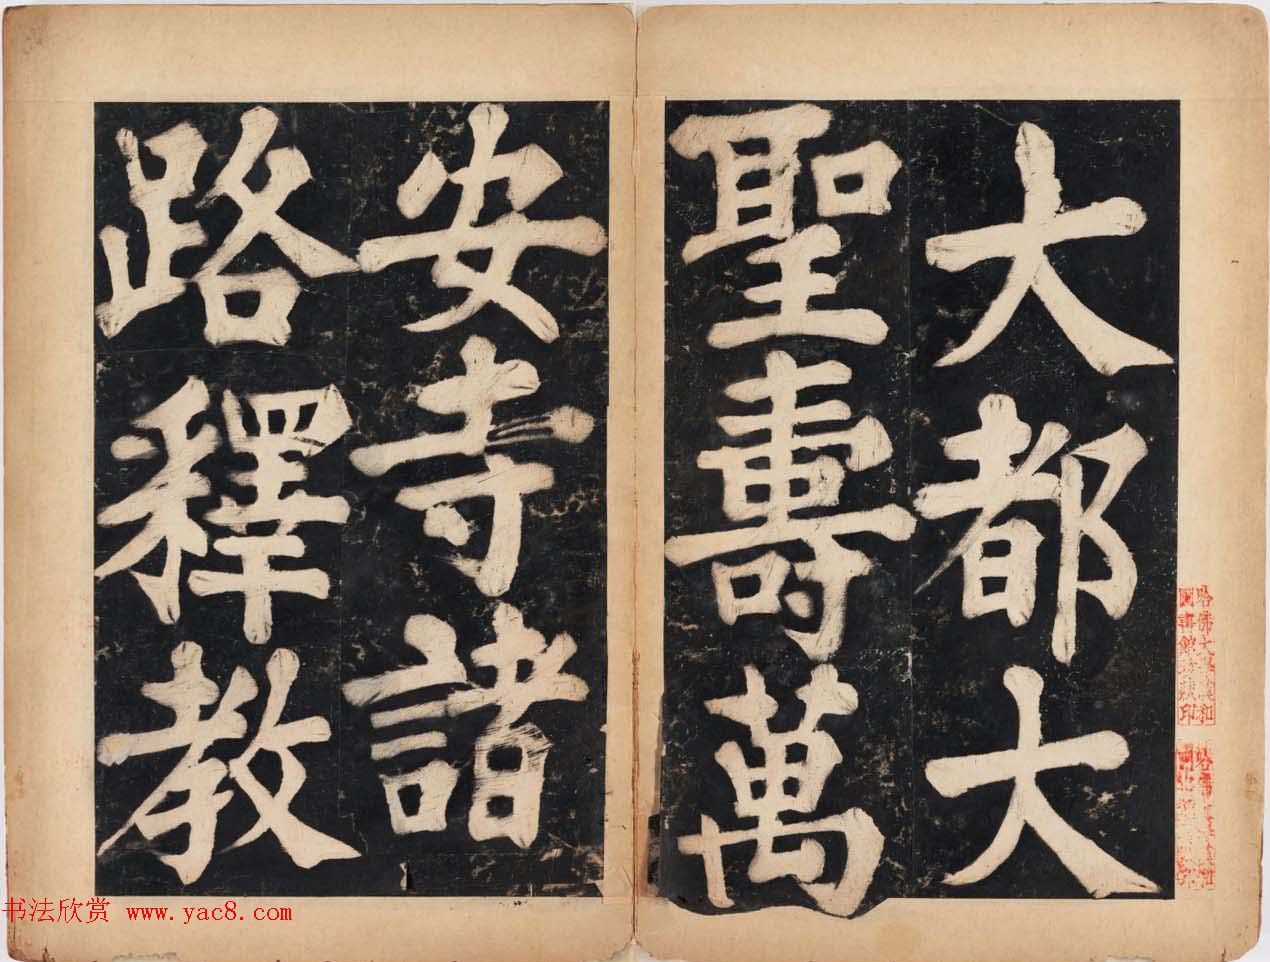 大都大
聖壽萬
安寺諸
路釋教
哈佛大學漢和
圖書館珍藏印
书法欣赏 www.yac8.com